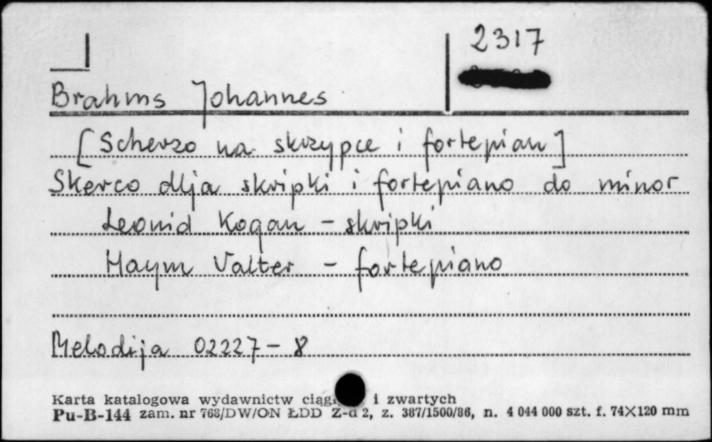 2317
Brahms Johannes
[Scherzo na skrzypce i fortepian]
Skerco dlja skripki i fortepiano do minor
Leonid Kogan - skripki
Naum Valter - fortepiano
Melodija 02227-8
Karta katalogowa wydawnictw i zwartych
Pu-B-144 zam. nr 768/DW/ON ŁDD Z-d 2, z. 387/1500/86, n. 4 044 000 szt. f. 74×120 mm